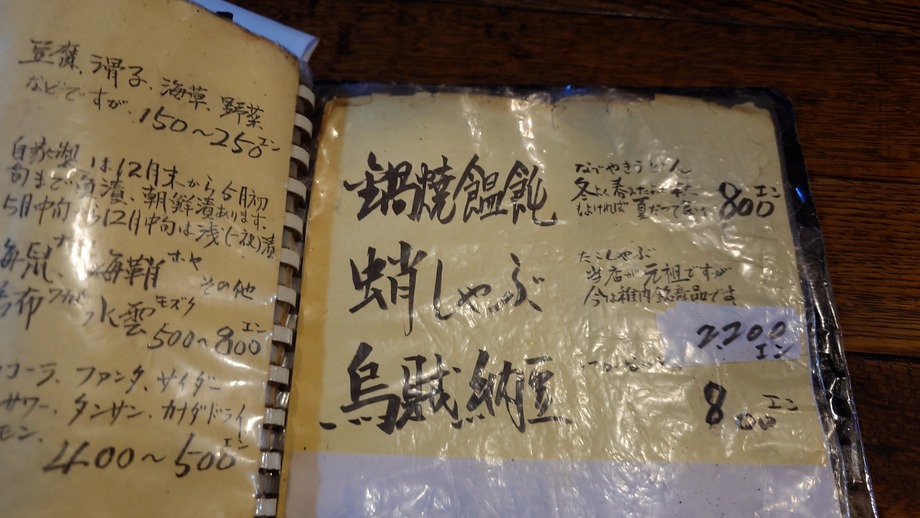 豆腐、滑子、海草、野菜
などですが、150〜250エン
自家製 は12月末から5月初
旬まで 漬、朝鮮漬あります。
5月中旬 12月中旬は浅(一夜)漬
海鼠、海鞘ホヤ その他
水雲モズク
500〜800エン
コーラ、ファンタ、サイダー
サワー、タンサン、カナダドライ
モン、
400〜500エン
鍋焼饂飩
なべやきうどん
冬よし春
もよければ 夏だって
800エン
蛸しゃぶ
たこしゃぶ
当店が元祖ですが
今は稚内銘産品です
2,200エン
烏賊納豆
800エン